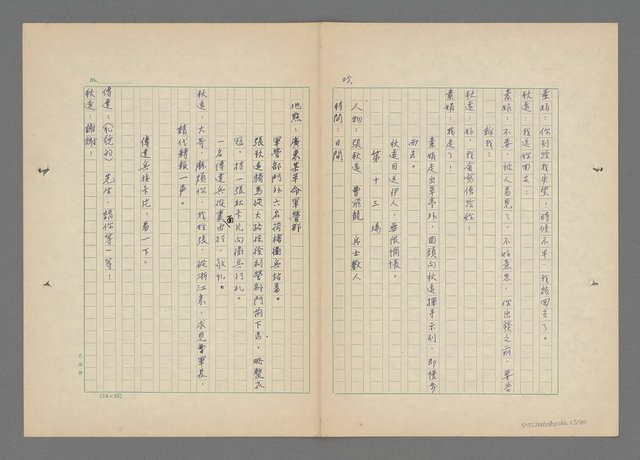 素娟：你別給我失望，時候不早，我該回去了。
秋遠：我送你回去：
素娟：不要，被人看見了，不好意思，你出發之前，要告
訴我：
秋遠：好，我會寫信給你！
素娟：我走了！
素娟走出草亭外，回頭向秋遠揮手示別，即慢步
而去。
秋遠目送伊人，無限惆悵。
第十三場
人物：張秋遠 曹飛龍 兵士數人
時間：日間
25.
No.
地點：廣東某革命軍營部
軍營部門外六名荷槍衛兵站著。
張秋遠騎馬從大路徐徐到營部門前下馬，略整衣
冠，持一張紅卡片向衛兵行礼。
一名傳達兵從裏面出行，敬礼。
秋遠：大哥，麻煩你，我姓張，從浙江來，求見曹軍長，
請代轉報一声。
傳達兵接卡片，看一下。
傳達：先生，請你等一等：
秋遠：謝謝！
(24×25)